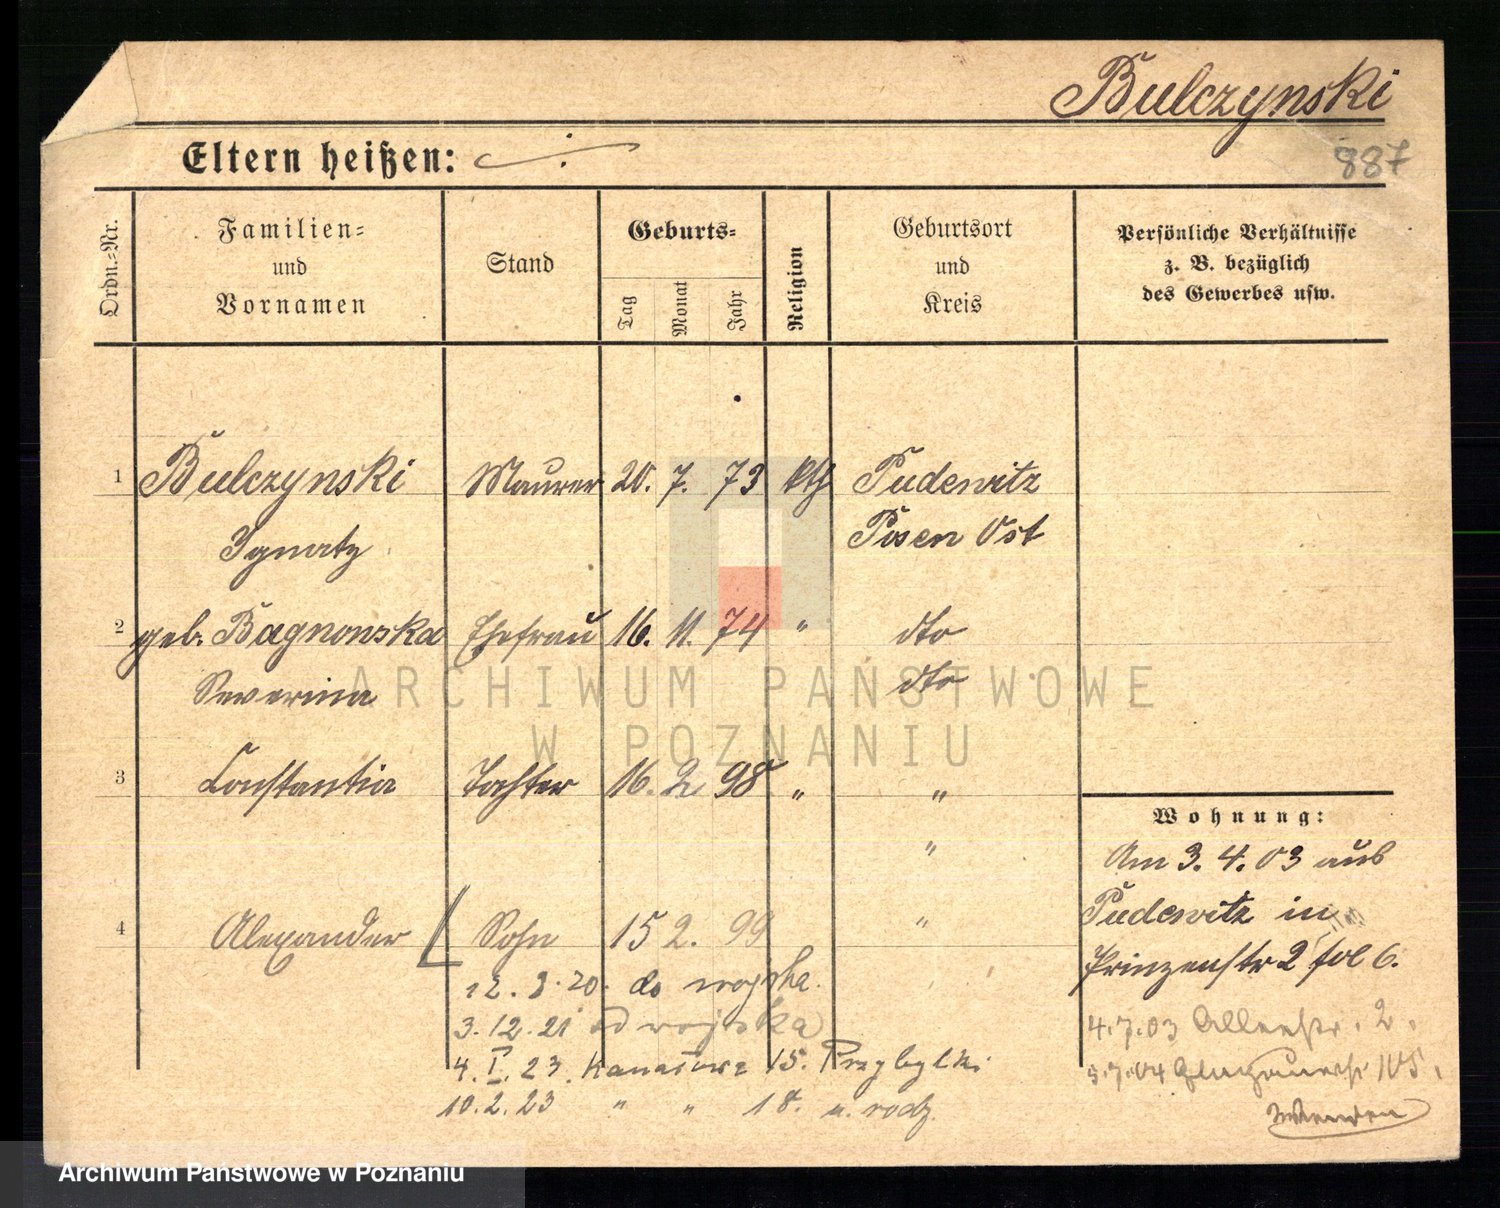 Bulczynski
887
Eltern heißen:
Ordn.=Nr.
Familien= und Vornamen
Stand
Geburts=
Tag
Monat
Jahr
Religion
Geburtsort und Kreis
Persönliche Verhältnisse z. B. bezüglich des Gewerbes usw.
1 Bulczynski Maurer 20. 7. 73 kth Pudewitz
Ignatz Posen Ost
2 geb. Bagnowska Ehefrau 16. 11. 74 " dto
Severina dto
3 Constantia Tochter 16. 2. 98 " "
"
4 Alexander Sohn 15 2. 99 "
12. 3. 20. do wojska.
3. 12. 21 od wojska
4. I. 23. Kanałowa 15. Przybylski
10. 2. 23 " " 18. u. rodz.
Wohnung:
Am 3. 4. 03 aus
Pudewitz in
Prinzenstr 2 fol 6.
4. 7. 03 Allerstr. 2.
105.
Wenden
ARCHIWUM PAŃSTWOWE
W POZNANIU
Archiwum Państwowe w Poznaniu